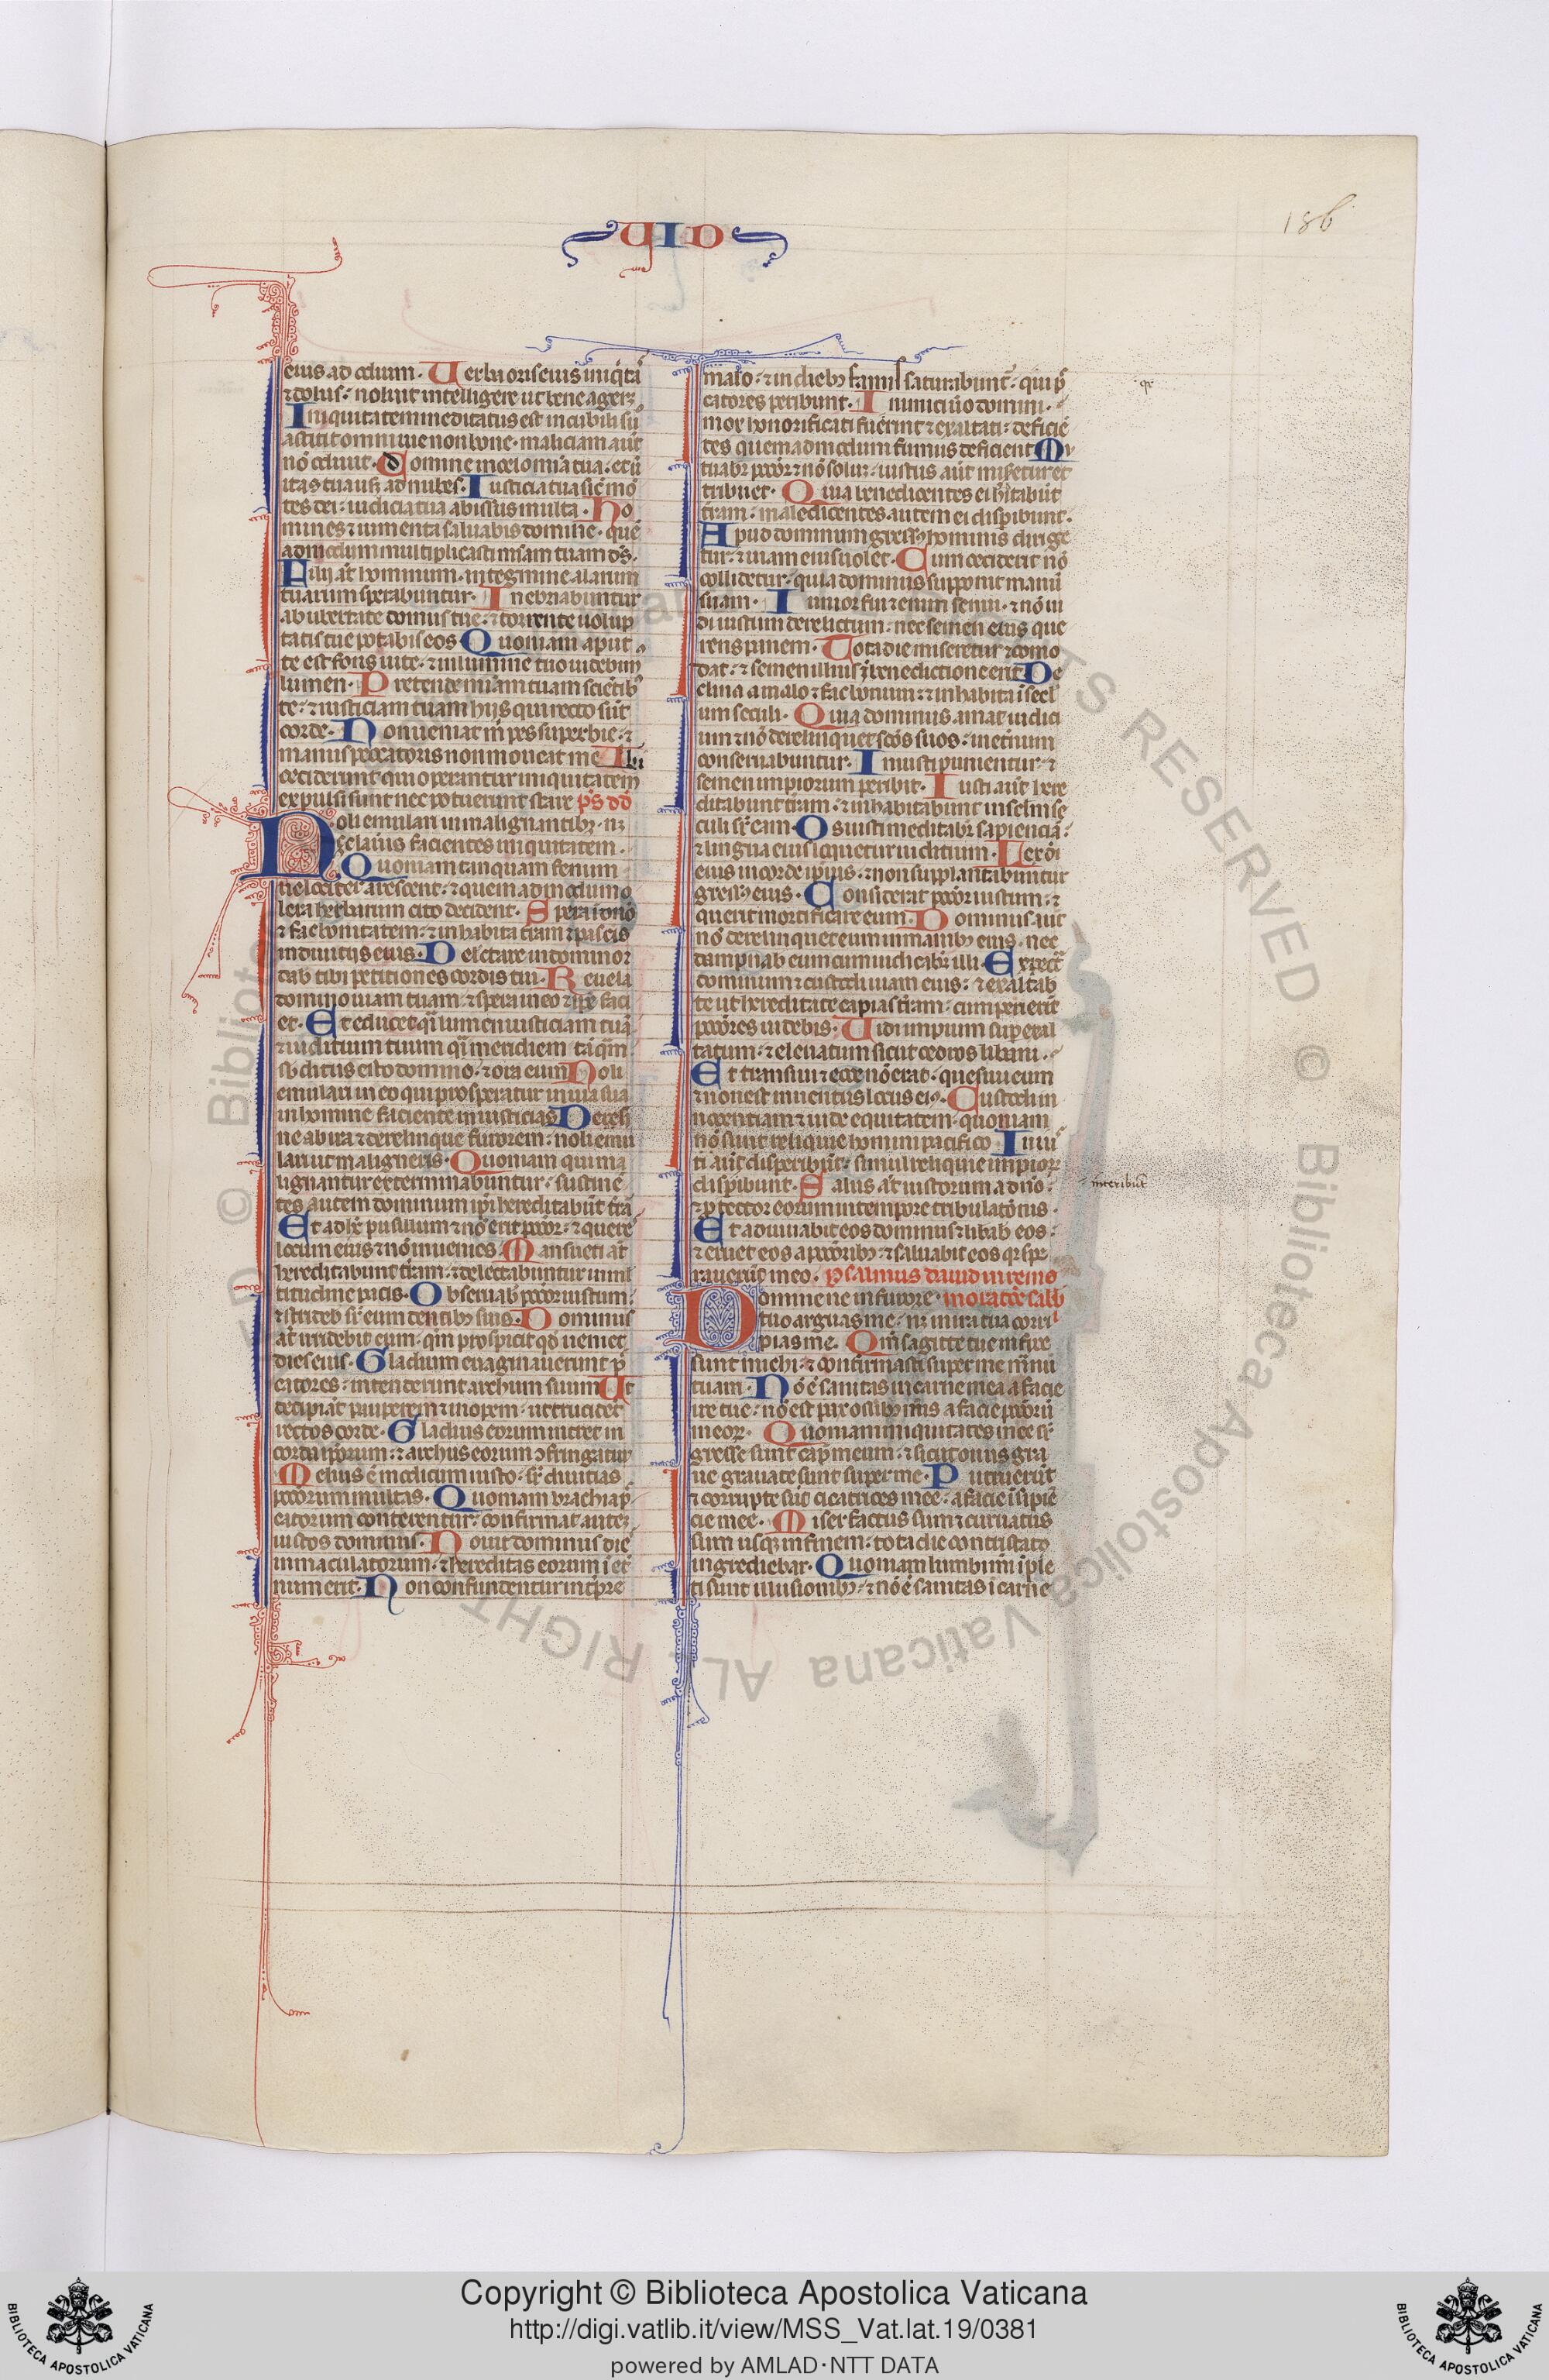 VID
186
eius ad odium. Verba oris eius iniq̾tas
⁊ dolus: noluit intelligere ut bene agerꝫ
Iniquitatem meditatus est in cubili suo
astitit omni uie non bone. maliciam aut̄
nō odiuit. Domine in celo mīa tua: et ū
itas tua usqꝫ ad nubes. Iusticia tua sic̄ mō
tes dei: iudicia tua abissus multa. Ho
mines ⁊ iumenta saluabis domine. quē
admodum multiplicasti mīam tuam ds̄.
Filij at̄ hominum. in tegmine alarum
tuarum sperabuntur. Inebriabuntur
ab ubertate domus tue: ⁊ torrente uolup
tatis tue potabis eos Quoniam aput
te est fons uite: ⁊ in lumine tuo uidebimꝰ
lumen. Pretende mīam tuam scientibꝰ
te: ⁊ iusticiam tuam hijs qui recto sūt
corde. Non ueniat m̄ pes superbie: ⁊
manus peccatoris non moueat me Ibi
ceciderunt qui operantur iniquitatem
expulsi sunt nec potuerunt stare ps̄ dd̄
Noli emulari in malignantibꝫ. nꝫ
zelaueris facientes iniquitatem.
Quoniam tanquam fenum
uelociter arescent: ⁊ quemadmodum o
lera herbarum cito decident. Spera ī dn̄o
⁊ fac bonitatem: ⁊ inhabita t̄ram ⁊ pasceis
in diuitijs eius. Delectare in domino ⁊
dab̄ tibi petitiones cordis tui. Reuela
domino uiam tuam: ⁊ spera in eo ⁊ ip̄e faci
et. Et educet q̄i lumen iusticiam tuā
⁊ iudicium tuum q̄i meridiem
sb̄ditus esto domino: ⁊ ora eum Noli
emulari in eo qui prosperatur in uia sua
in homine faciente iniusticias Desi
ne ab ira ⁊ derelinque furorem: noli emu
lari ut maligneris. Quoniam qui ma
lignantur exterminabuntur: sustinē
tes autem dominum ip̄i hereditabūt t̄rā
Et adhc̄ pusillum ⁊ nō erit pccōr: ⁊ queres
locum eius ⁊ nō inuenies. Mansueti at̄
hereditabunt t̄ram: ⁊ delectabuntur in ml̄
titudine pacis. Obseruab̄ pccōr iustum:
⁊ strideb̄ sr̄ eum dentibꝫ suis. Dominus
at̄ irridebit eum: qm̄ prospicit qd̄ ueniet
dies eius. Gladium euaginauerunt pc̄
catores: intenderunt archum suum Ut
decipiāt pauperem ⁊ inopem: ut trucidēt
rectos corde. Gladius eorum intret in
corda ip̄orum: ⁊ archus eorum ɔfringatur
Melius ē modicum iusto: sr̄ diuitias
pccōrum multas. Quoniam brachia pc̄
catorum conterentur: confirmat autē
iustos dominus. Nouit dominus dies
inmaculatorum: ⁊ hereditas eorum ī et̄
num erit. Non confundentur in tp̄re
malo: ⁊ in diebꝫ famis saturabunt̄: qui pc̄
catores peribunt. Inimici ūo domini.
mox honorificati fuerint ⁊ exaltati: deficiē
tes quemadmodum fumus deficient Mu
tuabr̄ pccōr ⁊ nō soluꝫ: iustus aut̄ miseretur et
tribuet. Quia benedicentes ei h̄itabūt
t̄ram: maledicentes autem ei disp̄ibunt.
Apud dominum gressꝫ hominis dirige
tur: ⁊ uiam eius uolet. Cum ceciderit nō
collidetur: quia dominus supponit manū
suam. Iunior fui ⁊ enim senui: ⁊ nō ui
di iustum derelictum: nec semen eius que
rens panem. Tota die miseretur ⁊ como
dat: ⁊ semen illius ī benedictione erit De
clina a malo ⁊ fac bonum: ⁊ inhabita ī secl̄
um seculi. Quia dominus amat iudici
um ⁊ nō derelinquet scōs suos: in et̄num
conseruabuntur. Iniusti punientur: ⁊
semen impiorum peribit. Iusti aut̄ here
ditabunt t̄ram: ⁊ inhabitabunt in sclm̄ se
culi sr̄ eam Os iusti meditabr̄ sapienciā:
⁊ lingua eius loquetur iudicium. Lex dī
eius in corde ipius: ⁊ non supplantabuntur
gressꝫ eius. Considerat pccōr iustum: ⁊
querit mortificare eum. Dominus aut̄
nō derelinquet eum in manibꝫ eius. nec
dampnab̄ eum cum iudicabr̄ illi. Expectā
dominum ⁊ custodi uiam eius: ⁊ exaltab̄
te ut hereditate capias t̄ram: cum perierīt
pccōres uidebis. Uidi impium superexal
tatum: ⁊ eleuatum sicut cedros libani.
Et transiui ⁊ ecce nō erat: quesiui eum
⁊ non est inuentus locus eiꝰ. Custodi in
nocentiam ⁊ uide equitatem: quoniam
nō sunt reliquie homini pacifico. Iniu
ti aut̄ disperibūt: simul reliquie impioꝝ
interibūt
disp̄ibunt. Salus at̄ iustorum a dn̄o:
⁊ ꝓtector eorum in tempore tribulatōnis.
Et adiuuabit eos dominus ⁊ libab̄ eos:
⁊ eruet eos a pccōribꝫ: ⁊ saluabit eos qr̄ spe
rauerūt in eo. Psalmus dauid in remo
Domine ne in furore moratōe sabb̄
tuo arguas me: nꝫ in ira tua corri
pias me. Qm̄ sagitte tue infixe
sunt michi: ⁊ confirmasti super me manū
tuam. Nō ē sanitas in carne mea a facie
ire tue: nō est pax ossibꝫ m̄is a facie pccōrū
meoꝝ. Quoniam iniquitates mee sr̄
gresse sunt cap̄ meum: ⁊ sicut onus gra
ue grauate sunt super me. Putruerūt
⁊ corrupte sūt cicatrices mee: a facie īsipiē
cie mee. Miser factus sum ⁊ curuatus
sum usqꝫ in finem: tota die contristatꝰ
ingrediebar. Quoniam lumbi m̄i īple
ti sunt illusionibꝫ: ⁊ nō ē sanitas ī carne
Copyright © Biblioteca Apostolica Vaticana
http://digi.vatlib.it/view/MSS_Vat.lat.19/0381
powered by AMLAD·NTT DATA
BIBLIOTECA APOSTOLICA VATICANA
BIBLIOTECA APOSTOLICA VATICANA